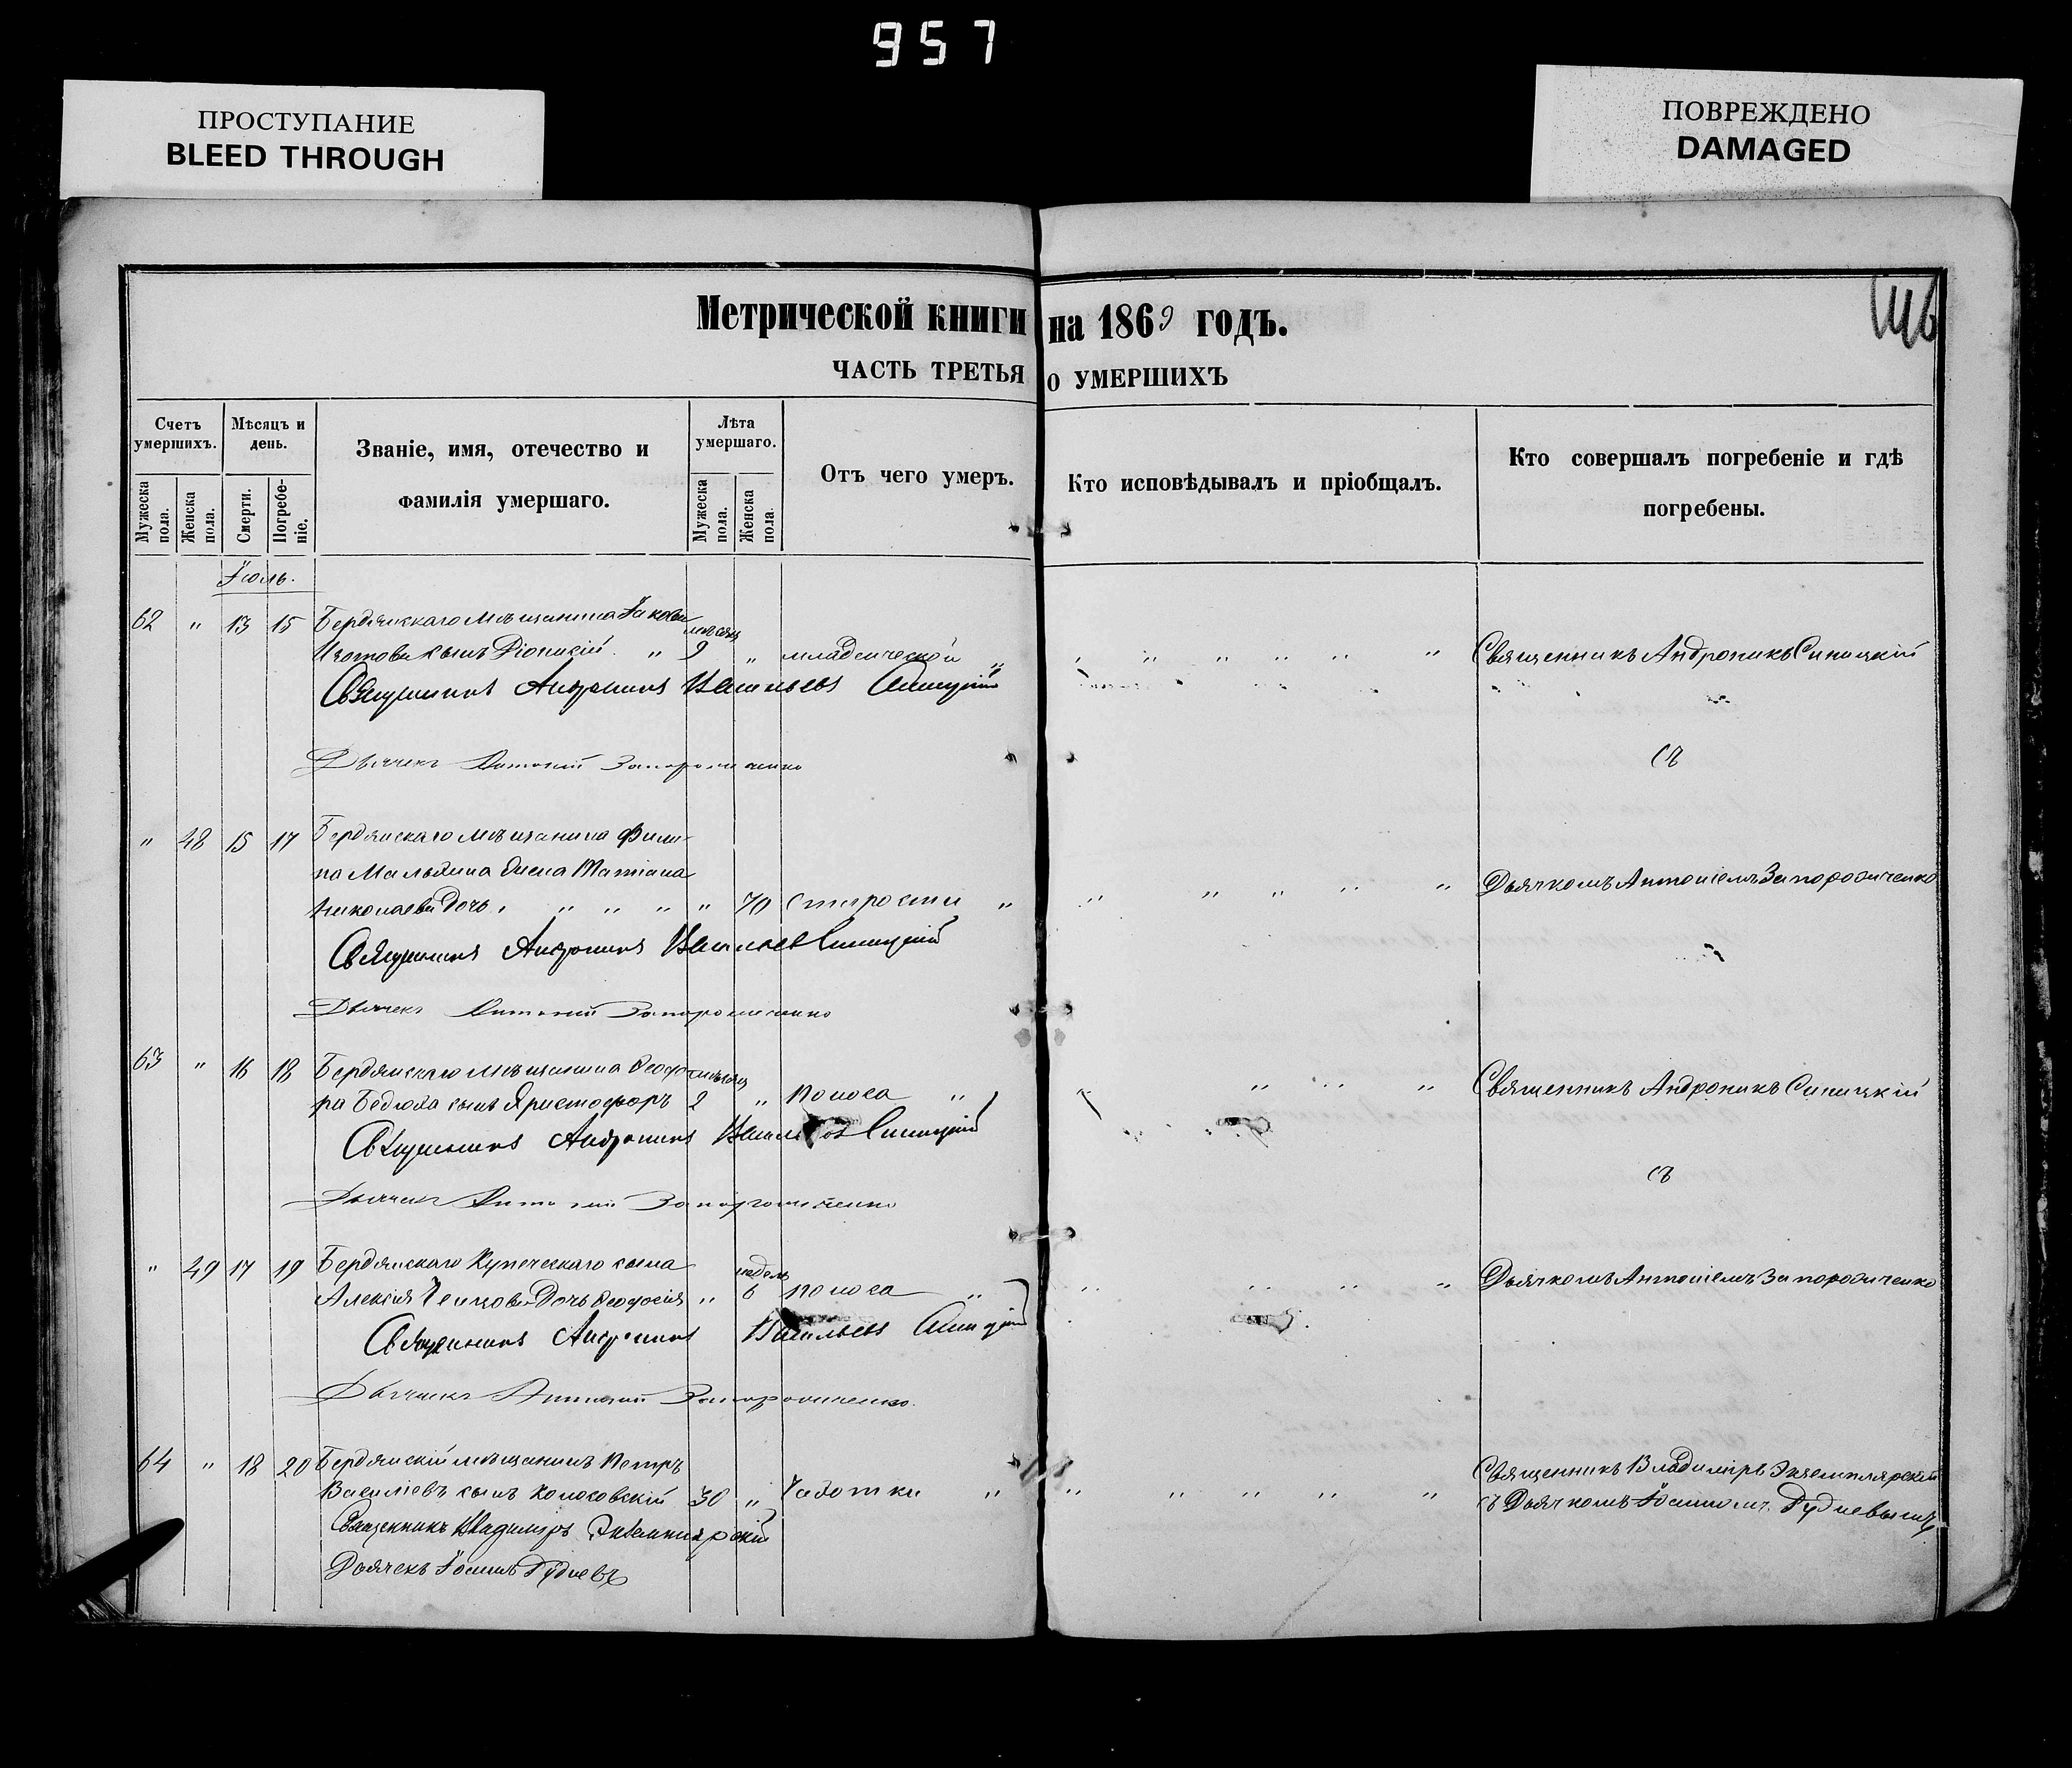 957
ПРОСТУПАНИЕ
BLEED THROUGH
ПОВРЕЖДЕНО
DAMAGED
Метрической книги на 1869 годъ.
ЧАСТЬ ТРЕТЬЯ О УМЕРШИХЪ
Счетъ умершихъ.
Мужеска пола.
Женска пола.
Мѣсяцъ и день.
Смерти.
Погребеніе.
Званіе, имя, отечество и фамилія умершаго.
Лѣта умершаго.
Мужеска пола.
Женска пола.
Отъ чего умеръ.
Кто исповѣдывалъ и пріобщалъ.
Кто совершалъ погребеніе и гдѣ погребены.
Іюль.
62 " 13 15 Бердянскаго мѣщанина Іакова
Изотова сынъ Діонисій " мѣсяц 9 " младенческой " Священникъ Андроникъ Синицкій
Священникъ Андроникъ Васильевъ Синицкій
Дьячекъ Антоній Запорожченко
съ
" 48 15 17 Бердянскаго мѣщанина Фили-
па жена Татіана Дьячкомъ Антоніемъ Запорожченко
Николаева дочь " " " " " 70 Старости "
Священникъ Андроникъ Васильевъ Синицкій
Дьячекъ Антоній Запорожченко
63 " 16 18 Бердянскаго мѣщанина Ѳеодо-
ра сынъ Христофоръ мѣсяц 2 " Поноса " Священникъ Андроникъ Синицкій
Священникъ Андроникъ Васильевъ Синицкій
съ
Дьячекъ Антоній Запорожченко
" 49 17 19 Бердянскаго Купеческаго сына
Алексія дочь Ѳеодосія " недель 6 Поноса " Дьячкомъ Антоніемъ Запорожченко
Священникъ Андроникъ Васильевъ Синицкій
Дьячекъ Антоній Запорожченко.
64 " 18 20 Бердянскій мѣщанинъ Петръ Священникъ Владиміръ Экземплярскій
Василіевъ сынъ Колосовскій 30 " Чахотки " съ Дьячкомъ Іоанномъ Гудиевымъ
Священникъ Владиміръ Экземплярскій
Дьячекъ Іоаннъ Гудиевъ